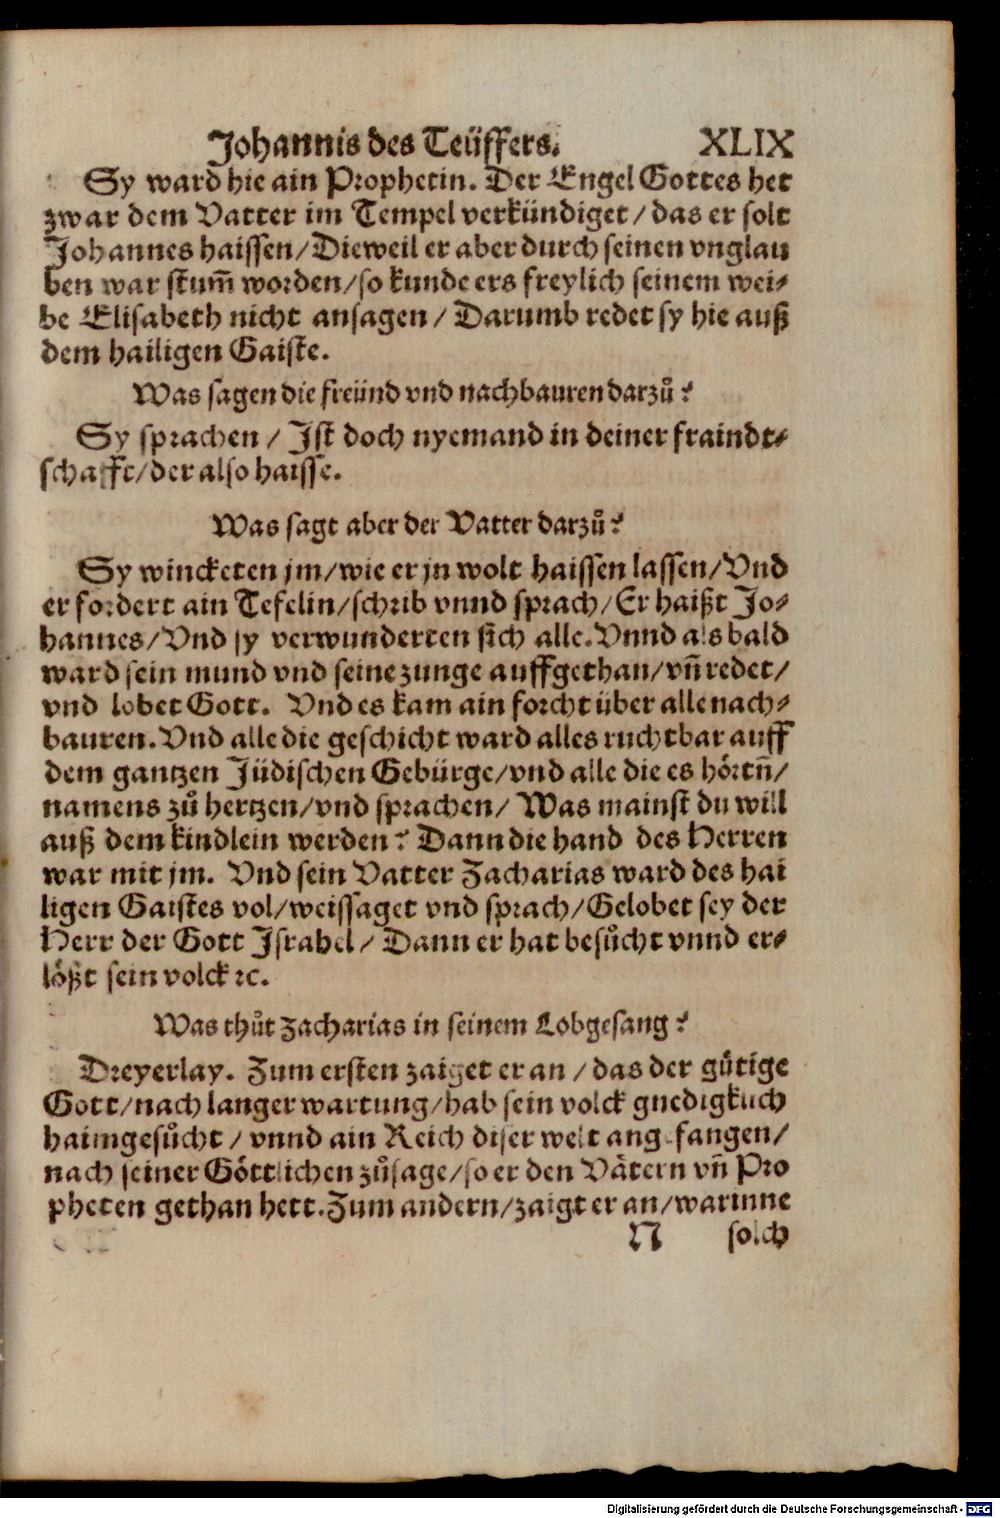 Johannis des Teüffers. XLIX
Sy ward hie ain Prophetin. Der Engel Gottes het
zwar dem Vatter im Tempel verkündiget / das er solt
Johannes haissen / Dieweil er aber durch seinen vnglau
ben war stum̃ worden / so kunde ers freylich seinem wei⸗
be Elisabeth nicht ansagen / Darumb redet sy hie auß
dem hailigen Gaiste.
Was sagen die freünd vnd nachbauren darzů?
Sy sprachen / Ist doch nyemand in deiner fraindt⸗
schafft / der also haisse.
Was sagt aber der Vatter darzů?
Sy wincketen jm / wie er jn wolt haissen lassen / Vnd
er fordert ain Tefelin / schrib vnnd sprach / Er haißt Jo⸗
hannes / Vnd sy verwunderten sich alle. Vnnd als bald
ward sein mund vnd seine zunge auffgethan / vñ redet /
vnd lobet Gott. Vnd es kam ain forcht über alle nach⸗
bauren. Vnd alle die geschicht ward alles ruchtbar auff
dem gantzen Jüdischen Gebürge / vnd alle die es hôrtñ /
namens zů hertzen / vnd sprachen / Was mainst du will
auß dem kindlein werden? Dann die hand des Herren
war mit jm. Vnd sein Vatter Zacharias ward des hai
ligen Gaistes vol / weissaget vnd sprach / Gelobet sey der
Herr der Gott Israhel / Dann er hat besůcht vnnd er⸗
lôßt sein volck ꝛc.
Was thůt Zacharias in seinem Lobgesang?
Dreyerlay. Zum ersten zaiget er an / das der gůtige
Gott / nach langer wartung / hab sein volck gnedigklich
haimgesůcht / vnnd ain Reich diser welt angefangen /
nach seiner Gôttlichen zůsage / so er den Vätern vñ Pro
pheten gethan hett. Zum andern / zaigt er an / warinne
N solch
Digitalisierung gefördert durch die Deutsche Forschungsgemeinschaft - DFG